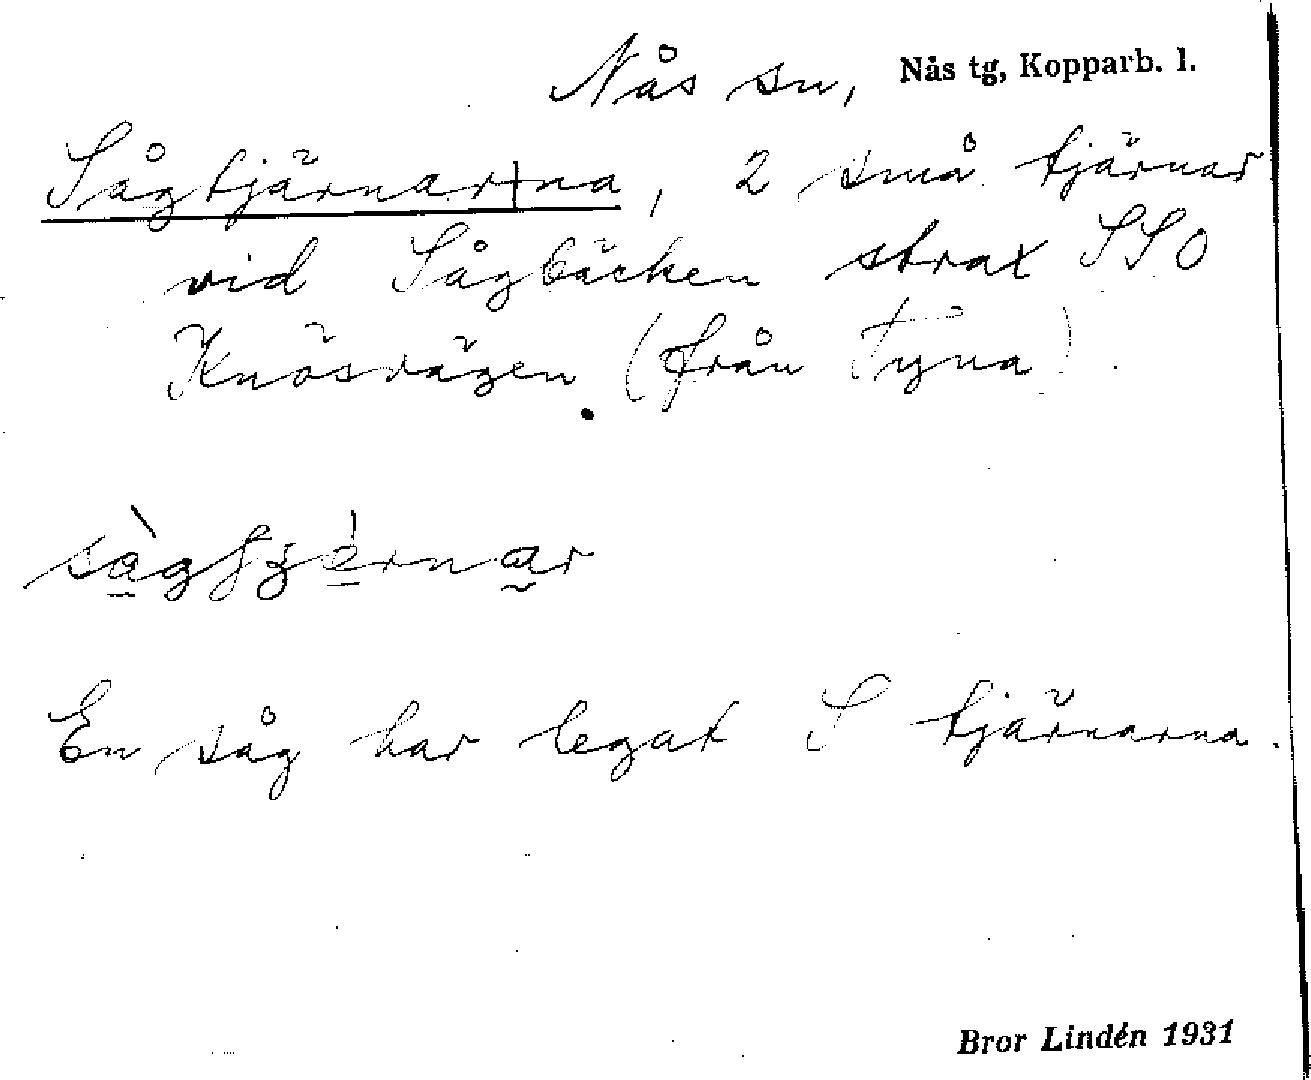 Nås sn, Nås tg, Kopparb. l.
Sågtjärnar+na, 2 små tjärnar
vid Sågbäcken strax SSO
Knösvägen (från Tyna).
En såg har legat S tjärnarna.
Bror Lindén 1931